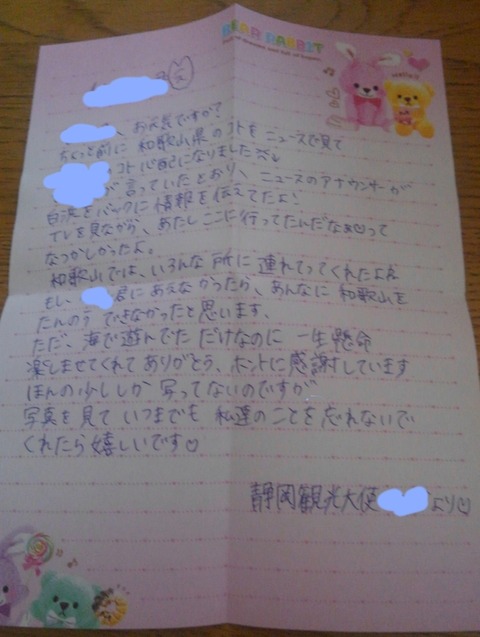 BEAR RABBIT
Hello!
え
、お元気ですか?
ちょっと前に 和歌山県のコトをニュースで見て
コト心配になりました
が言っていたとおり、ニュースのアナウンサーが
白浜をバックに情報を伝えてたよ!
TVを見ながら、あたしここに行ってたんだなぁ♡って
なつかしかったよ。
和歌山では、いろんな所に連れてってくれたよね
もし、君にあえなかったら、あんなに和歌山を
たんのうできなかったと思います、
ただ、海で遊んでただけなのに 一生懸命
楽しませてくれてありがとう、ホントに感謝しています
ほんの少ししか写ってないのですが
写真を見て いつまでも 私達のことを忘れないで
くれたら嬉しいです♡
静岡観光大使 より